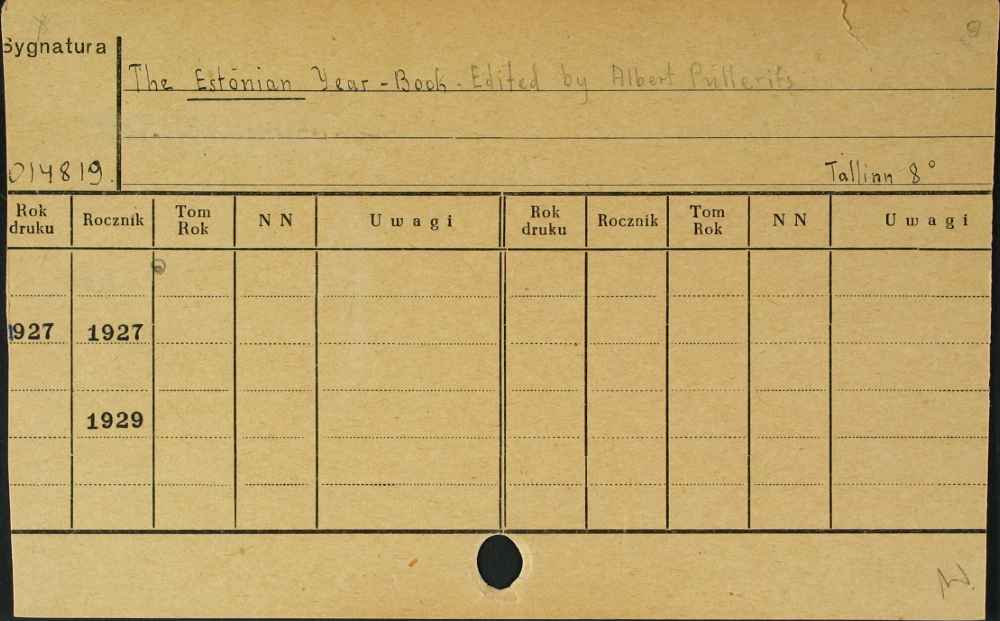 Sygnatura
The Estonian Year-Book. Edited by Albert Pullerits
014819.
Tallinn 8°
Rok druku Rocznik Tom Rok N N Uwagi Rok druku Rocznik Tom Rok N N Uwagi
1927 1927
1929